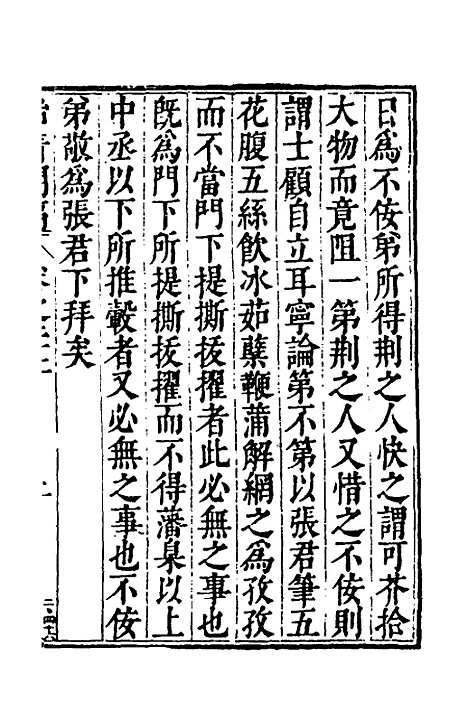 日為不佞弟所得荆之人快之謂可芥拾
大物而竟阻一第荆之人又惜之不佞則
謂士顧自立耳寧論第不第以張君筆五
花腹五絲飲冰茹蘗鞭蒲解網之為孜孜
而不當門下提撕拔擢者此必無之事也
既為門下所提撕拔擢而不得藩臬以上
中丞以下所推轂者又必無之事也不佞
弟敬為張君下拜矣